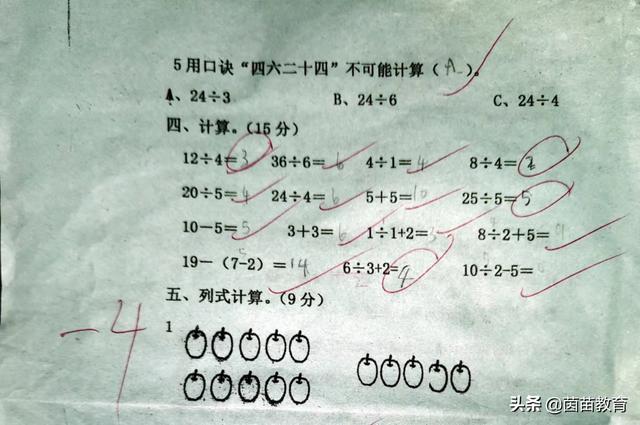 5用口诀“四六二十四”不可能计算（A）。
A、24÷3 B、24÷6 C、24÷4
四、计算。（15分）
12÷4=3 36÷6=6 4÷1=4 8÷4=2
20÷5=4 24÷4=6 5+5=10 25÷5=5
10－5=5 3+3=6 1÷1+2=3 8÷2+5=9
19－（7-2）=14 6÷3+2=4 10÷2-5=
五、列式计算。（9分）
-4
1
头条 @茵苗教育